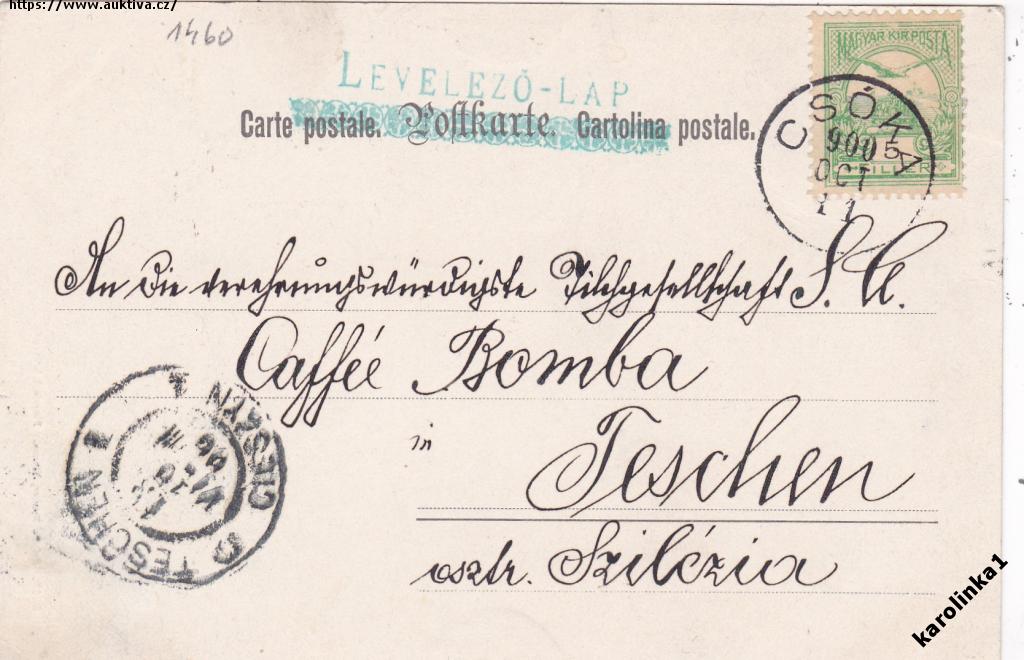 https://www.auktiva.cz/
1460
LEVELEZŐ-LAP
Carte postale. Postkarte. Cartolina postale.
MAGYAR KIR. POSTA
5
FILLÉR
CSÓKA
900
OCT
11
An die verehrungswürdigste Tischgesellschaft S. A.
Caffée Bomba
in
Teschen
osztr. Szilézia
TESCHEN 1
CIESZYN 1
karolinka1